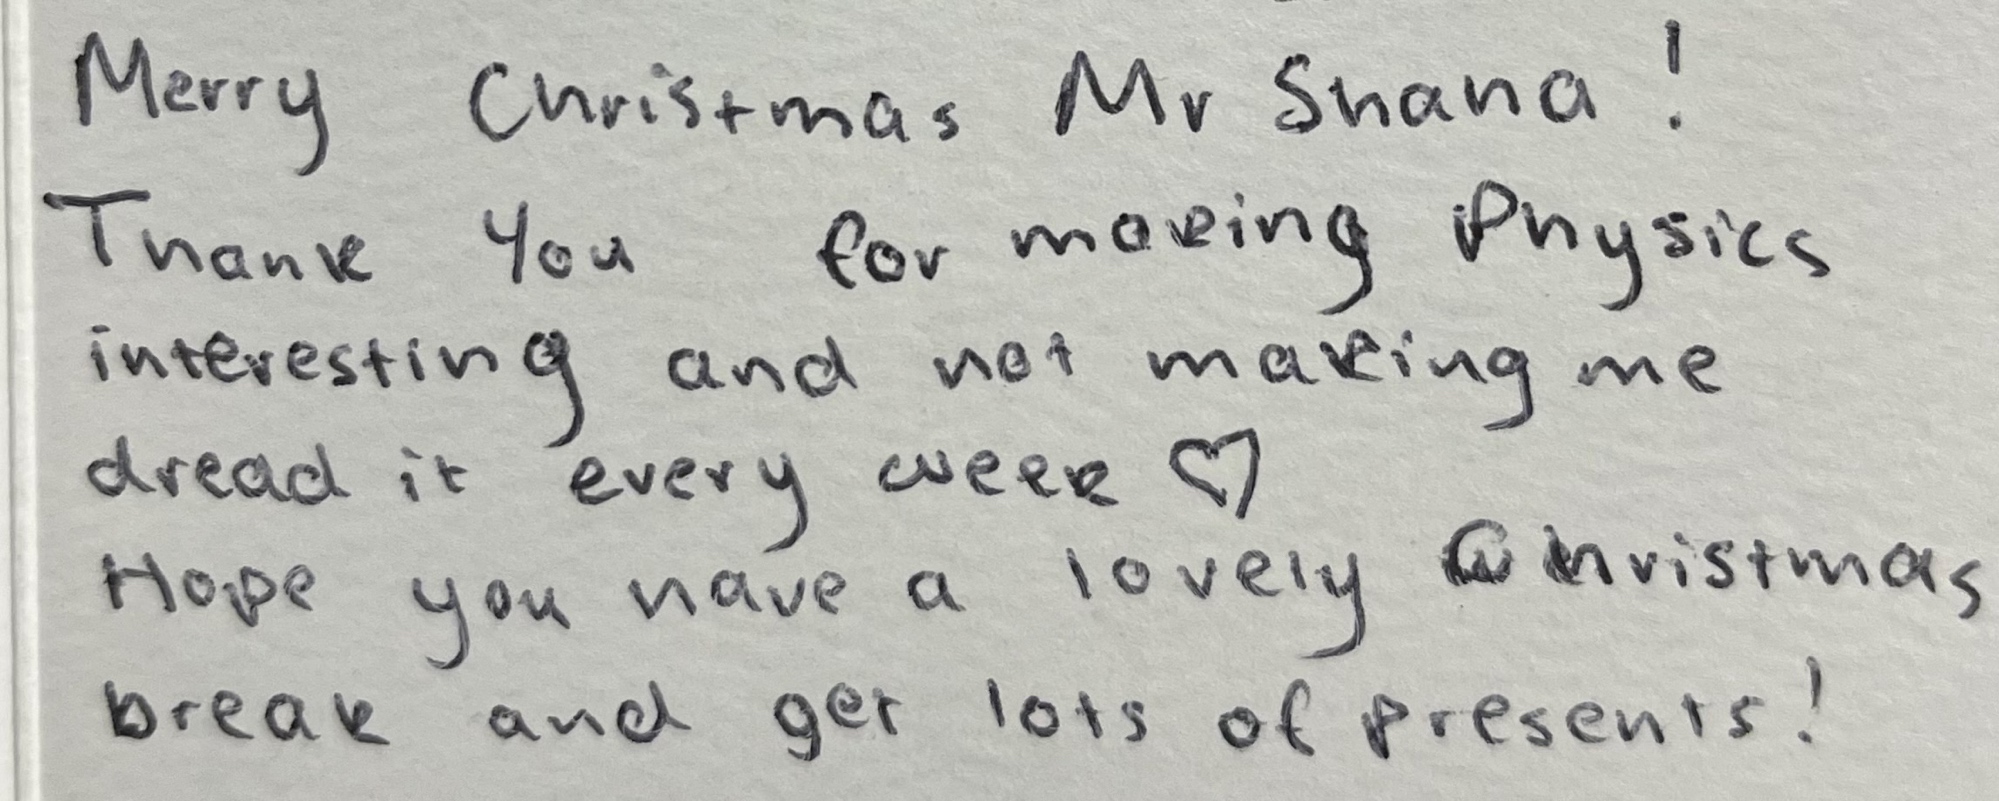 Merry Christmas Mr Shana!
Thank You for making Physics
interesting and not making me
dread it every week ♡
Hope you have a lovely Christmas
break and get lots of presents!